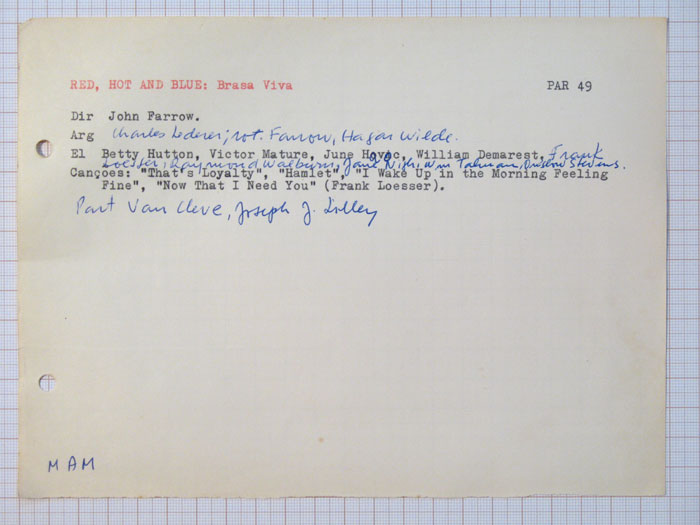 RED, HOT AND BLUE: Brasa Viva PAR 49
Dir John Farrow.
Arg Charles Lederer; rot. Farrow, Hagar Wilde.
El Betty Hutton, Victor Mature, June Havoc, William Demarest, Frank
Loesser, Raymond Walburn, Jane Nigh, Wm Talman, Onslow Stevens.
Cançoes: "That's Loyalty", "Hamlet", "I Wake Up in the Morning Feeling
Fine", "Now That I Need You" (Frank Loesser).
Part Van Cleve, Joseph J. Lilley
MAM